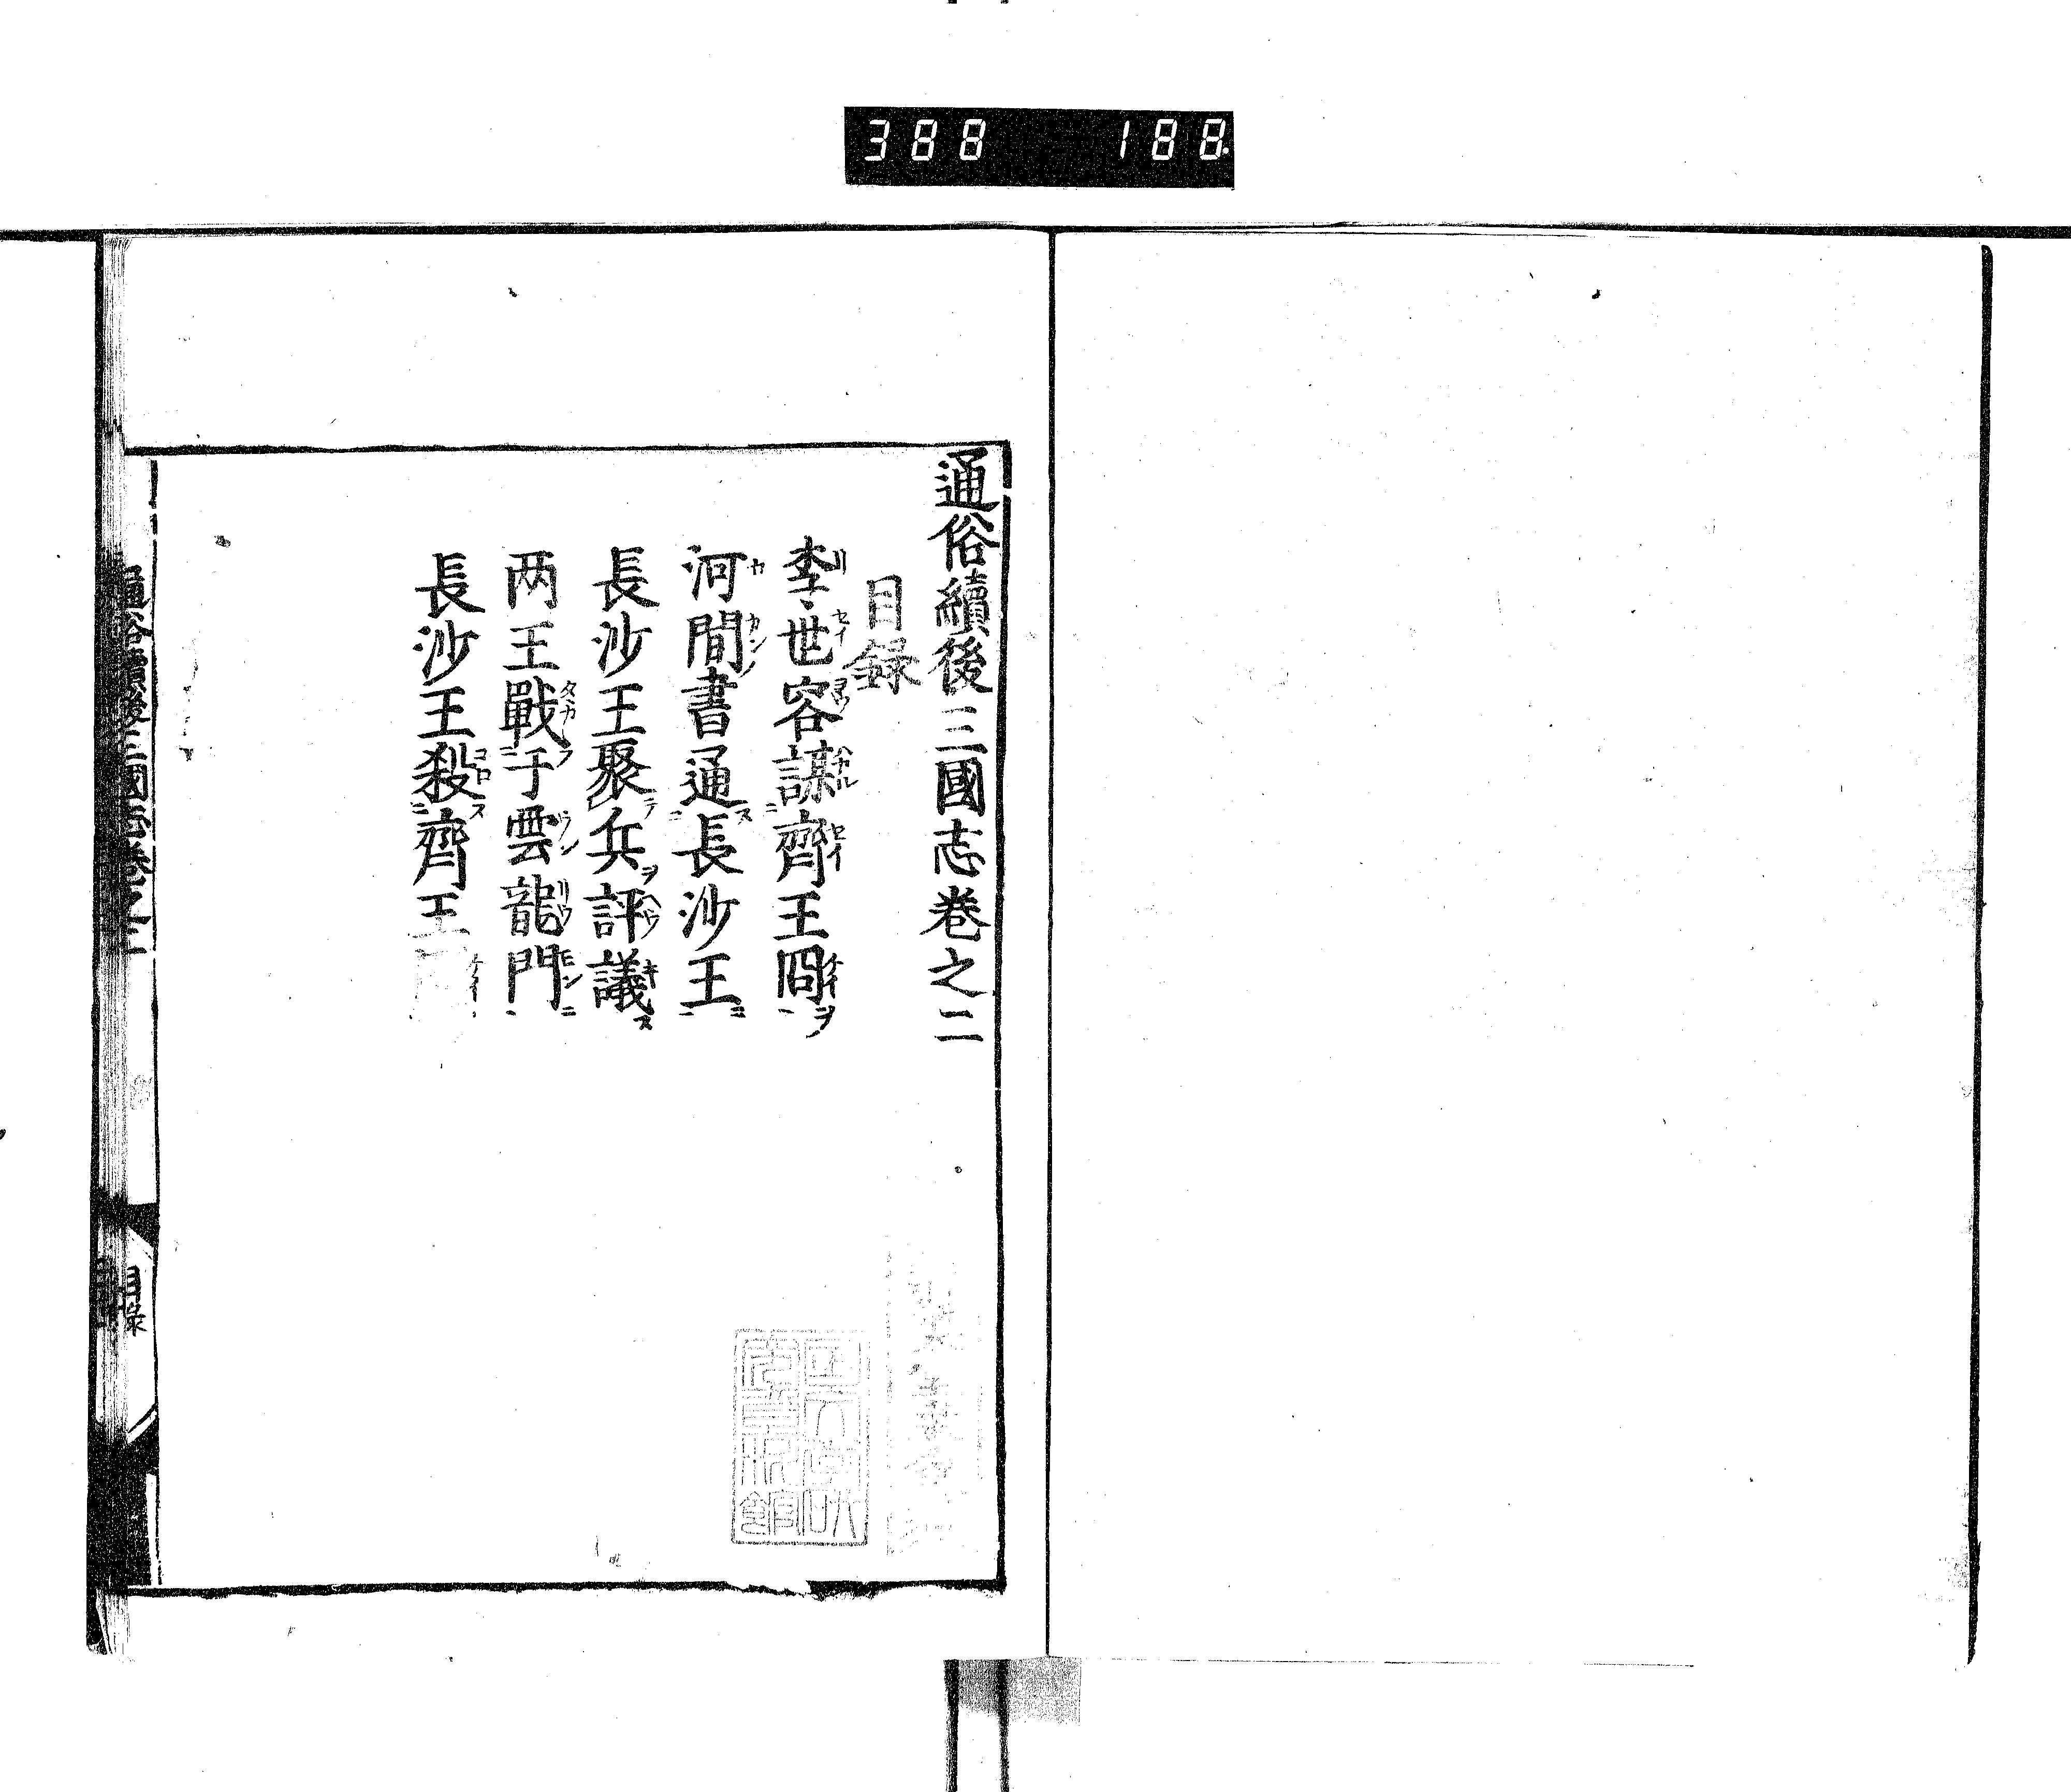 388 188
通俗續後三國志卷之二
目録
李世容謀齊王冏
河間書通長沙王
長沙王聚兵評議
两王戰于雲龍門
長沙王殺齊王
通俗續後三國志卷之二
目録